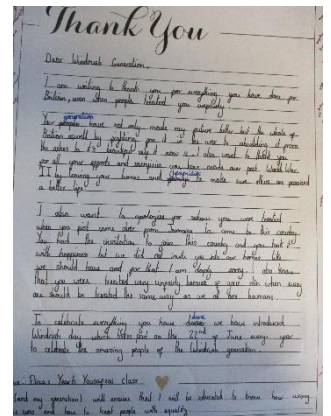 Thank You
Dear Windrush Generation,
I am writing to thank you for everything you have done for
Britain, even when people treated you unfairly.
generation
Your people have not only made my future better but the whole of
Britain aswell by fighting for it in the war to rebuilding it from
the ashes to it's beautiful now. I also want to thank you
for all your efforts and sacrifices you have made over post World War
II by leaving your homes and families to make sure others
a better life.
I also want to apologise for how you were treated
when you first came over from to come to this country.
You had the invitation to join this country and you took it
with happiness but we did not invite you into our homes like
we should have and for that I am deeply sorry. I also know
that you were treated very unfairly because of your skin when every
one should be treated the same way as we all are humans.
To celebrate everything you have done we have introduced
Windrush day which takes place on the 22nd of June every year
to celebrate the amazing people of the Windrush generation.
class
(and my generation) will ensure that I will be educated to know how wrong
was and how to treat people with equality